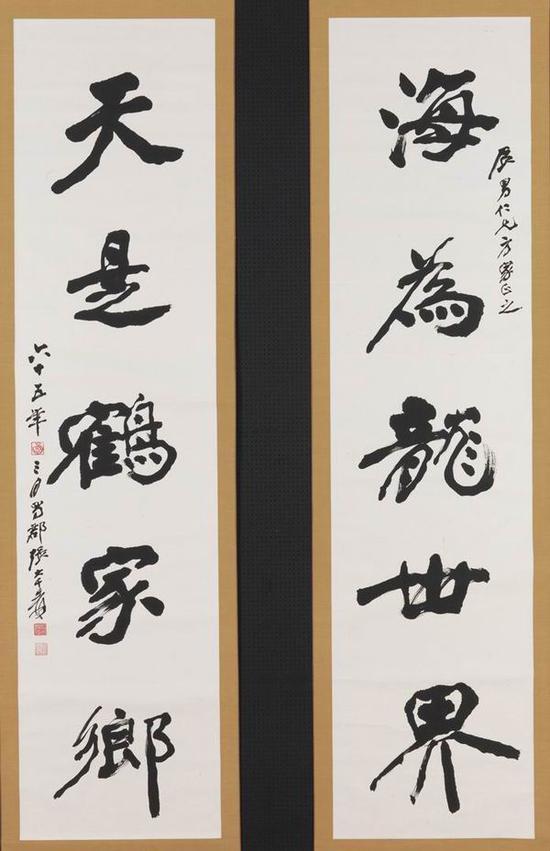 海為龍世界
展男仁兄方家正之
天是鶴家鄉
六十五年三月蜀郡張大千爰